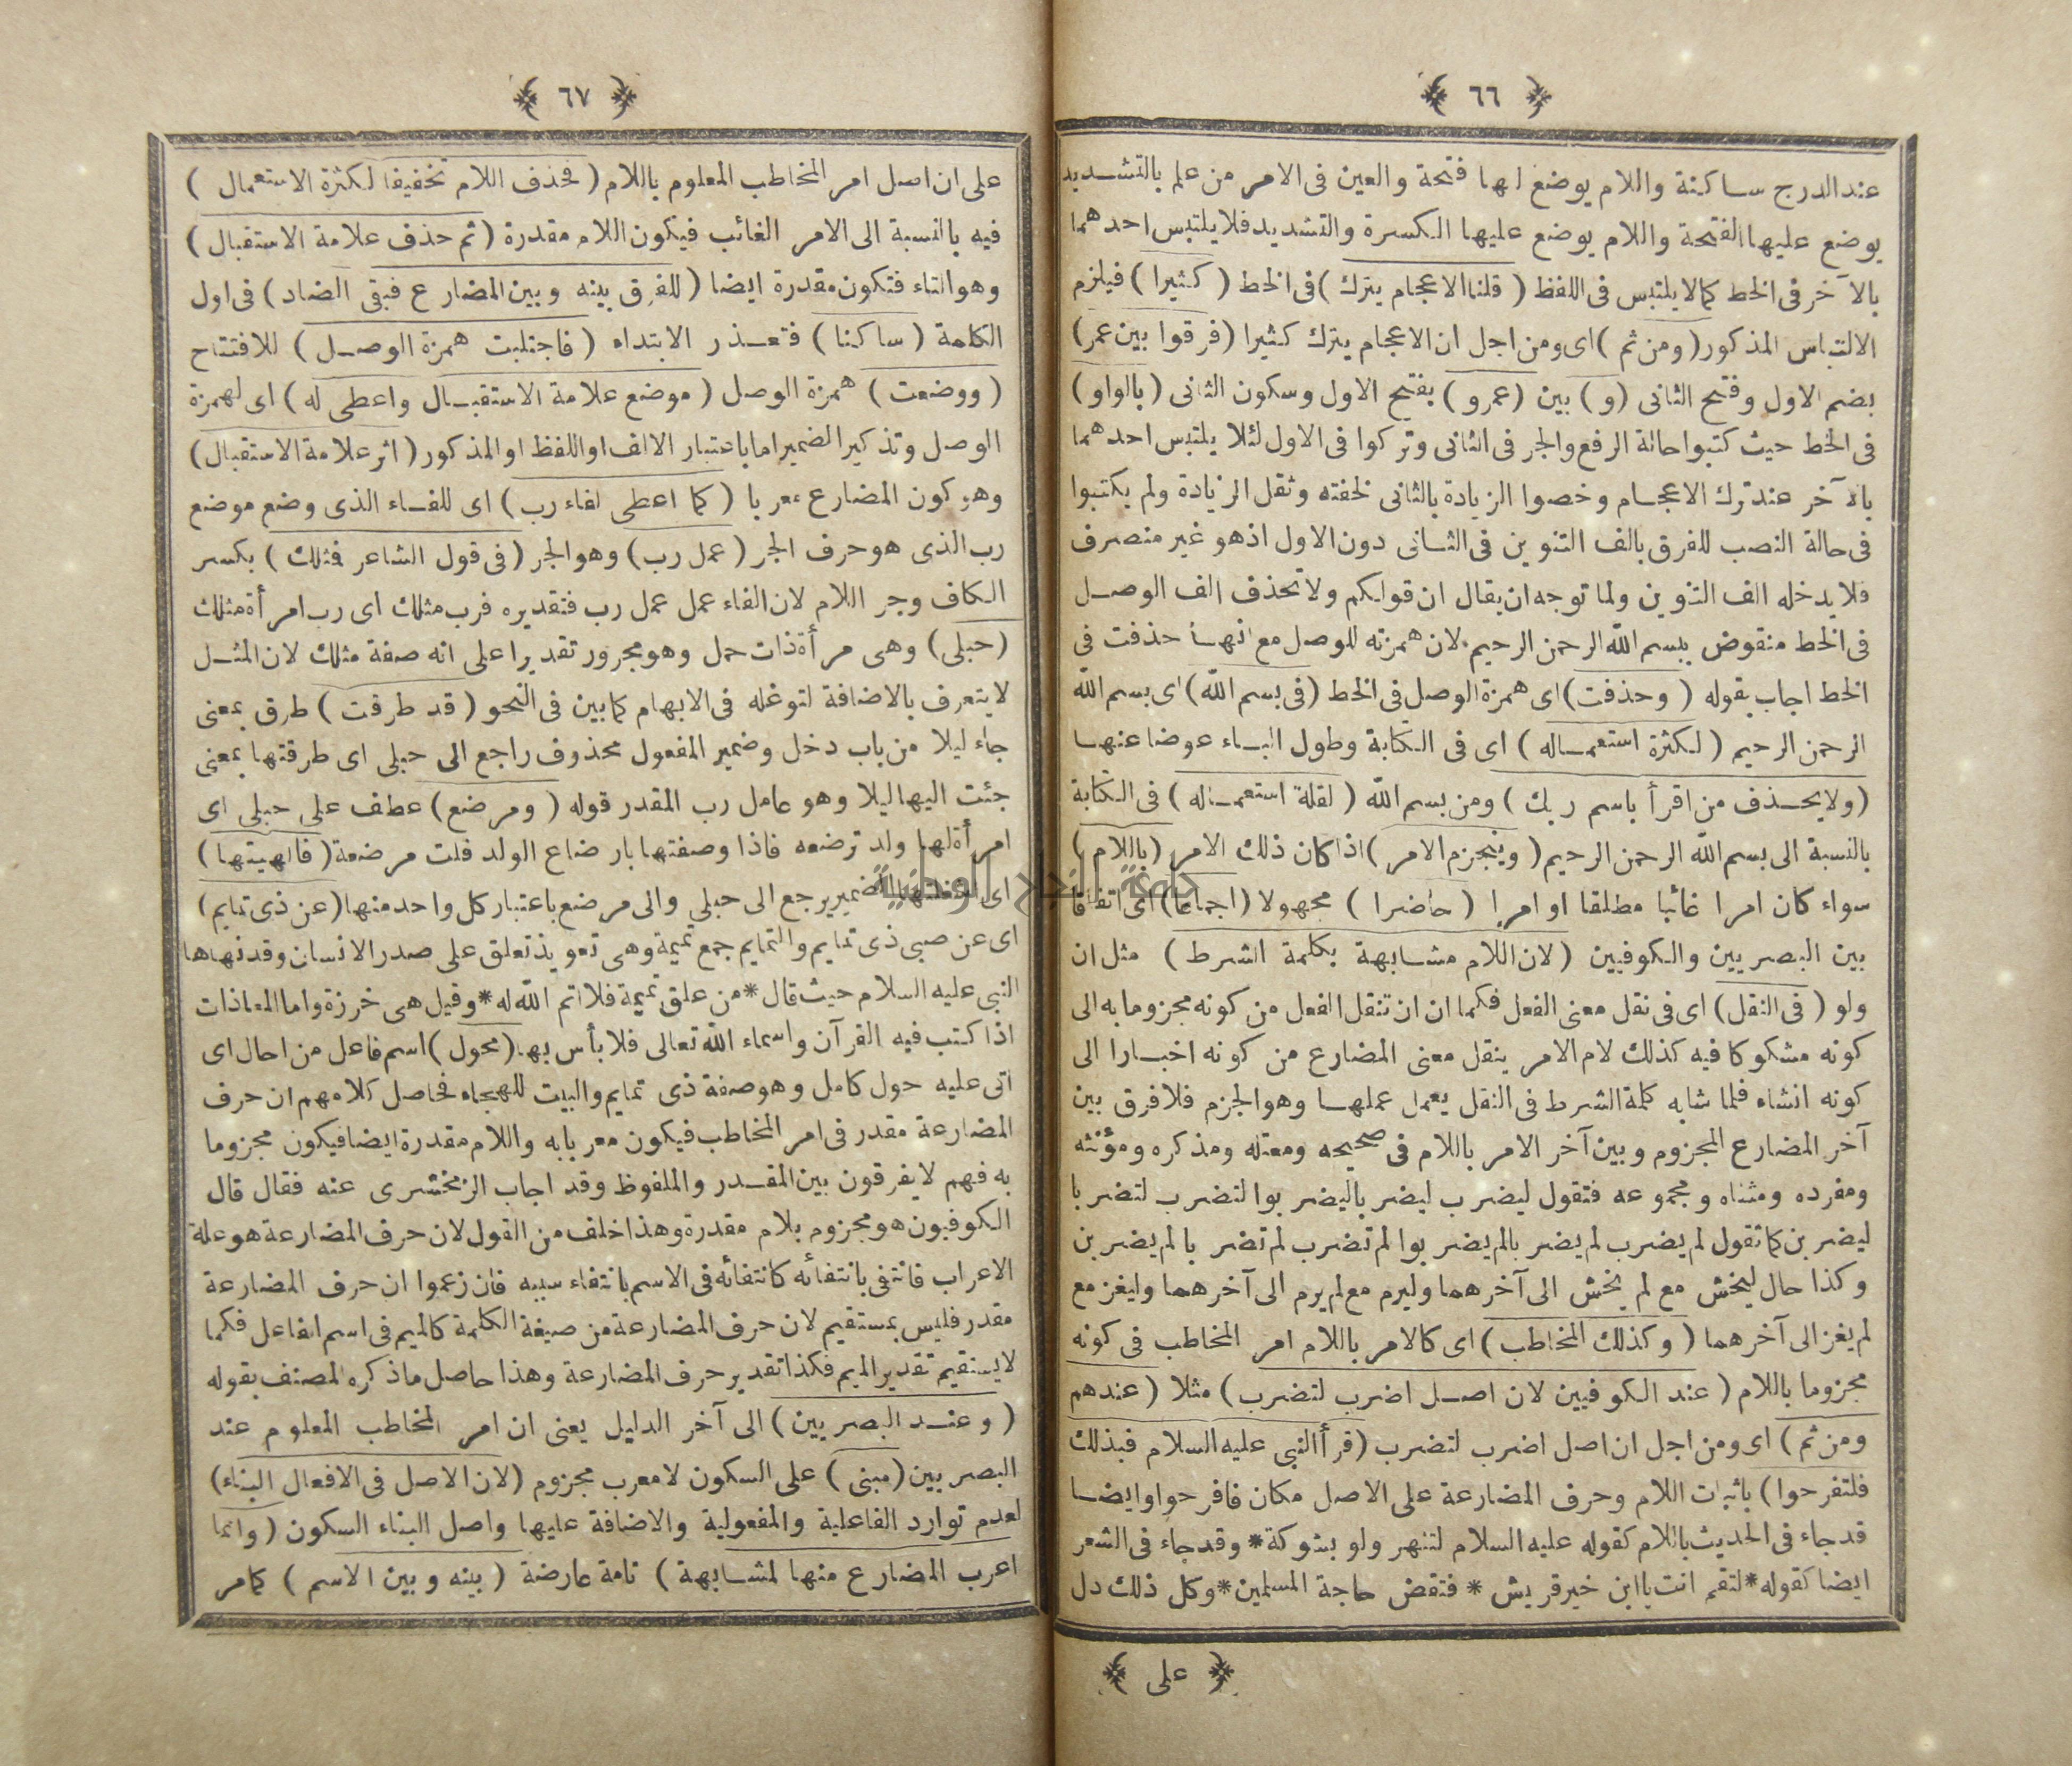 ﴿ ٦٦ ﴾
عند الدرج ساكنة واللام يوضع لها فتحة والعين فى الامر من علم بالتشديد
يوضع عليها الفتحة واللام يوضع عليها الكسرة والتشديد فلا يلتبس احدهما
بالآخر فى الخط كما لا يلتبس فى اللفظ ( قلنا الاعجام يترك ) فى الخط ( كثيرا ) فيلزم
الالتباس المذكور ( ومن ثم ) اى ومن اجل ان الاعجام يترك كثيرا ( فرقوا بين عمر )
بضم الاول وفتح الثانى ( و ) بين ( عمرو ) بفتح الاول وسكون الثانى ( بالواو )
فى الخط حيث كتبوا حالة الرفع والجر فى الثانى وتركوا فى الاول لئلا يلتبس احدهما
بالآخر عند ترك الاعجام وخصوا الزيادة بالثانى لخفته وثقل الزيادة ولم يكتبوا
فى حالة النصب للفرق بالف التنوين فى الثانى دون الاول اذ هو غير منصرف
فلا يدخله الف التنوين ولما توجه ان يقال ان قولكم ولا تحذف الف الوصل
فى الخط منقوض ببسم الله الرحمن الرحيم لان همزته للوصل مع انها حذفت فى
الخط اجاب بقوله ( وحذفت ) اى همزة الوصل فى الخط ( فى بسم الله ) اى بسم الله
الرحمن الرحيم ( لكثرة استعماله ) اى فى الكتابة وطول الباء عوضا عنها
( ولا يحذف من اقرأ باسم ربك ) ومن بسم الله ( لقلة استعماله ) فى الكتابة
بالنسبة الى بسم الله الرحمن الرحيم ( وينجزم الامر ) اذا كان ذلك الامر ( باللام )
سواء كان امرا غائبا مطلقا او امرا ( حاضرا ) مجهولا ( اجماعا ) اى اتفاقا
بين البصريين والكوفيين ( لان اللام مشابهة بكلمة الشرط ) مثل ان
ولو ( فى النقل ) اى فى نقل معنى الفعل فكما ان ان تنقل الفعل من كونه مجزوما به الى
كونه مشكوكا فيه كذلك لام الامر ينقل معنى المضارع من كونه اخبارا الى
كونه انشاء فلما شابه كلمة الشرط فى النقل يعمل عملها وهو الجزم فلا فرق بين
آخر المضارع المجزوم وبين آخر الامر باللام فى صحيحه ومعتله ومذكره ومؤنثه
ومفرده ومثناه ومجموعه فتقول ليضرب ليضربا ليضربوا لتضرب لتضربا
ليضربن كما تقول لم يضرب لم يضربا لم يضربوا لم تضرب لم تضربا لم يضربن
وكذا حال ليخش مع لم يخش الى آخرهما وليرم مع لم يرم الى آخرهما وليغز مع
لم يغز الى آخرهما ( وكذلك المخاطب ) اى كالامر باللام امر المخاطب فى كونه
مجزوما باللام ( عند الكوفيين لان اصل اضرب لتضرب ) مثلا ( عندهم
ومن ثم ) اى ومن اجل ان اصل اضرب لتضرب ( قرأ النبى عليه السلام فبذلك
فلتفرحوا ) باثبات اللام وحرف المضارعة على الاصل مكان فافرحوا وايضا
قد جاء فى الحديث باللام كقوله عليه السلام لتنهر ولو بشوكة * وقد جاء فى الشعر
ايضا كقوله * لتقم انت يا ابن خير قريش * فتقض حاجة المسلمين * وكل ذلك دل
﴿ على ﴾
﴿ ٦٧ ﴾
على ان اصل امر المخاطب المعلوم باللام ( فحذف اللام تخفيفا لكثرة الاستعمال )
فيه بالنسبة الى الامر الغائب فيكون اللام مقدرة ( ثم حذف علامة الاستقبال )
وهو التاء فتكون مقدرة ايضا ( للفرق بينه وبين المضارع فبقى الضاد ) فى اول
الكلمة ( ساكنا ) فتعذر الابتداء ( فاجتلبت همزة الوصل ) للافتتاح
( ووضعت ) همزة الوصل ( موضع علامة الاستقبال واعطى له ) اى لهمزة
الوصل وتذكير الضمير اما باعتبار الالف او اللفظ او المذكور ( اثر علامة الاستقبال )
وهو كون المضارع معربا ( كما اعطى لفاء رب ) اى للفاء الذى وضع موضع
رب الذى هو حرف الجر ( عمل رب ) وهو الجر ( فى قول الشاعر فمثلك ) بكسر
الكاف وجر اللام لان الفاء عمل عمل رب فتقديره فرب مثلك اى رب امرأة مثلك
( حبلى ) وهى مرأة ذات حمل وهو مجرور تقديرا على انه صفة مثلك لان المثل
لا يتعرف بالاضافة لتوغله فى الابهام كما بين فى النحو ( قد طرقت ) طرق بمعنى
جاء ليلا من باب دخل وضمير المفعول محذوف راجع الى حبلى اى طرقتها بمعنى
جئت اليها ليلا وهو عامل رب المقدر قوله ( ومرضع ) عطف على حبلى اى
امرأة لها ولد ترضعه فاذا وصفتها بارضاع الولد قلت مرضعة ( فالهيتها )
اى الضمير يرجع الى حبلى والى مرضع باعتبار كل واحد منها ( عن ذى تمايم )
اى عن صبى ذى تمايم والتمايم جمع تميمة وهى تعويذ تعلق على صدر الانسان وقد نهاها
النبى عليه السلام حيث قال * من علق تميمة فلا اتم الله له * وقيل هى خرزة واما المعاذات
اذا كتب فيه القرآن واسماء الله تعالى فلا بأس بها ( محول ) اسم فاعل من احال اى
اتى عليه حول كامل وهو صفة ذى تمايم والبيت للهجاء فحاصل كلامهم ان حرف
المضارعة مقدر فى امر المخاطب فيكون معربا به واللام مقدرة ايضا فيكون مجزوما
به فهم لا يفرقون بين المقدر والملفوظ وقد اجاب الزمخشرى عنه فقال قال
الكوفيون هو مجزوم بلام مقدرة وهذا خلف من القول لان حرف المضارعة هو علة
الاعراب فانتفى بانتفائه كانتفائه فى الاسم بانتفاء سببه فان زعموا ان حرف المضارعة
مقدر فليس بمستقيم لان حرف المضارعة من صيغة الكلمة كالميم فى اسم الفاعل فكما
لا يستقيم تقدير الميم فكذا تقدير حرف المضارعة وهذا حاصل ما ذكره المصنف بقوله
( وعند البصريين ) الى آخر الدليل يعنى ان امر المخاطب المعلوم عند
البصريين ( مبنى ) على السكون لا معرب مجزوم ( لان الاصل فى الافعال البناء )
لعدم توارد الفاعلية والمفعولية والاضافة عليها واصل البناء السكون ( وانما
اعرب المضارع منها لمشابهة ) تامة عارضة ( بينه وبين الاسم ) كما مر